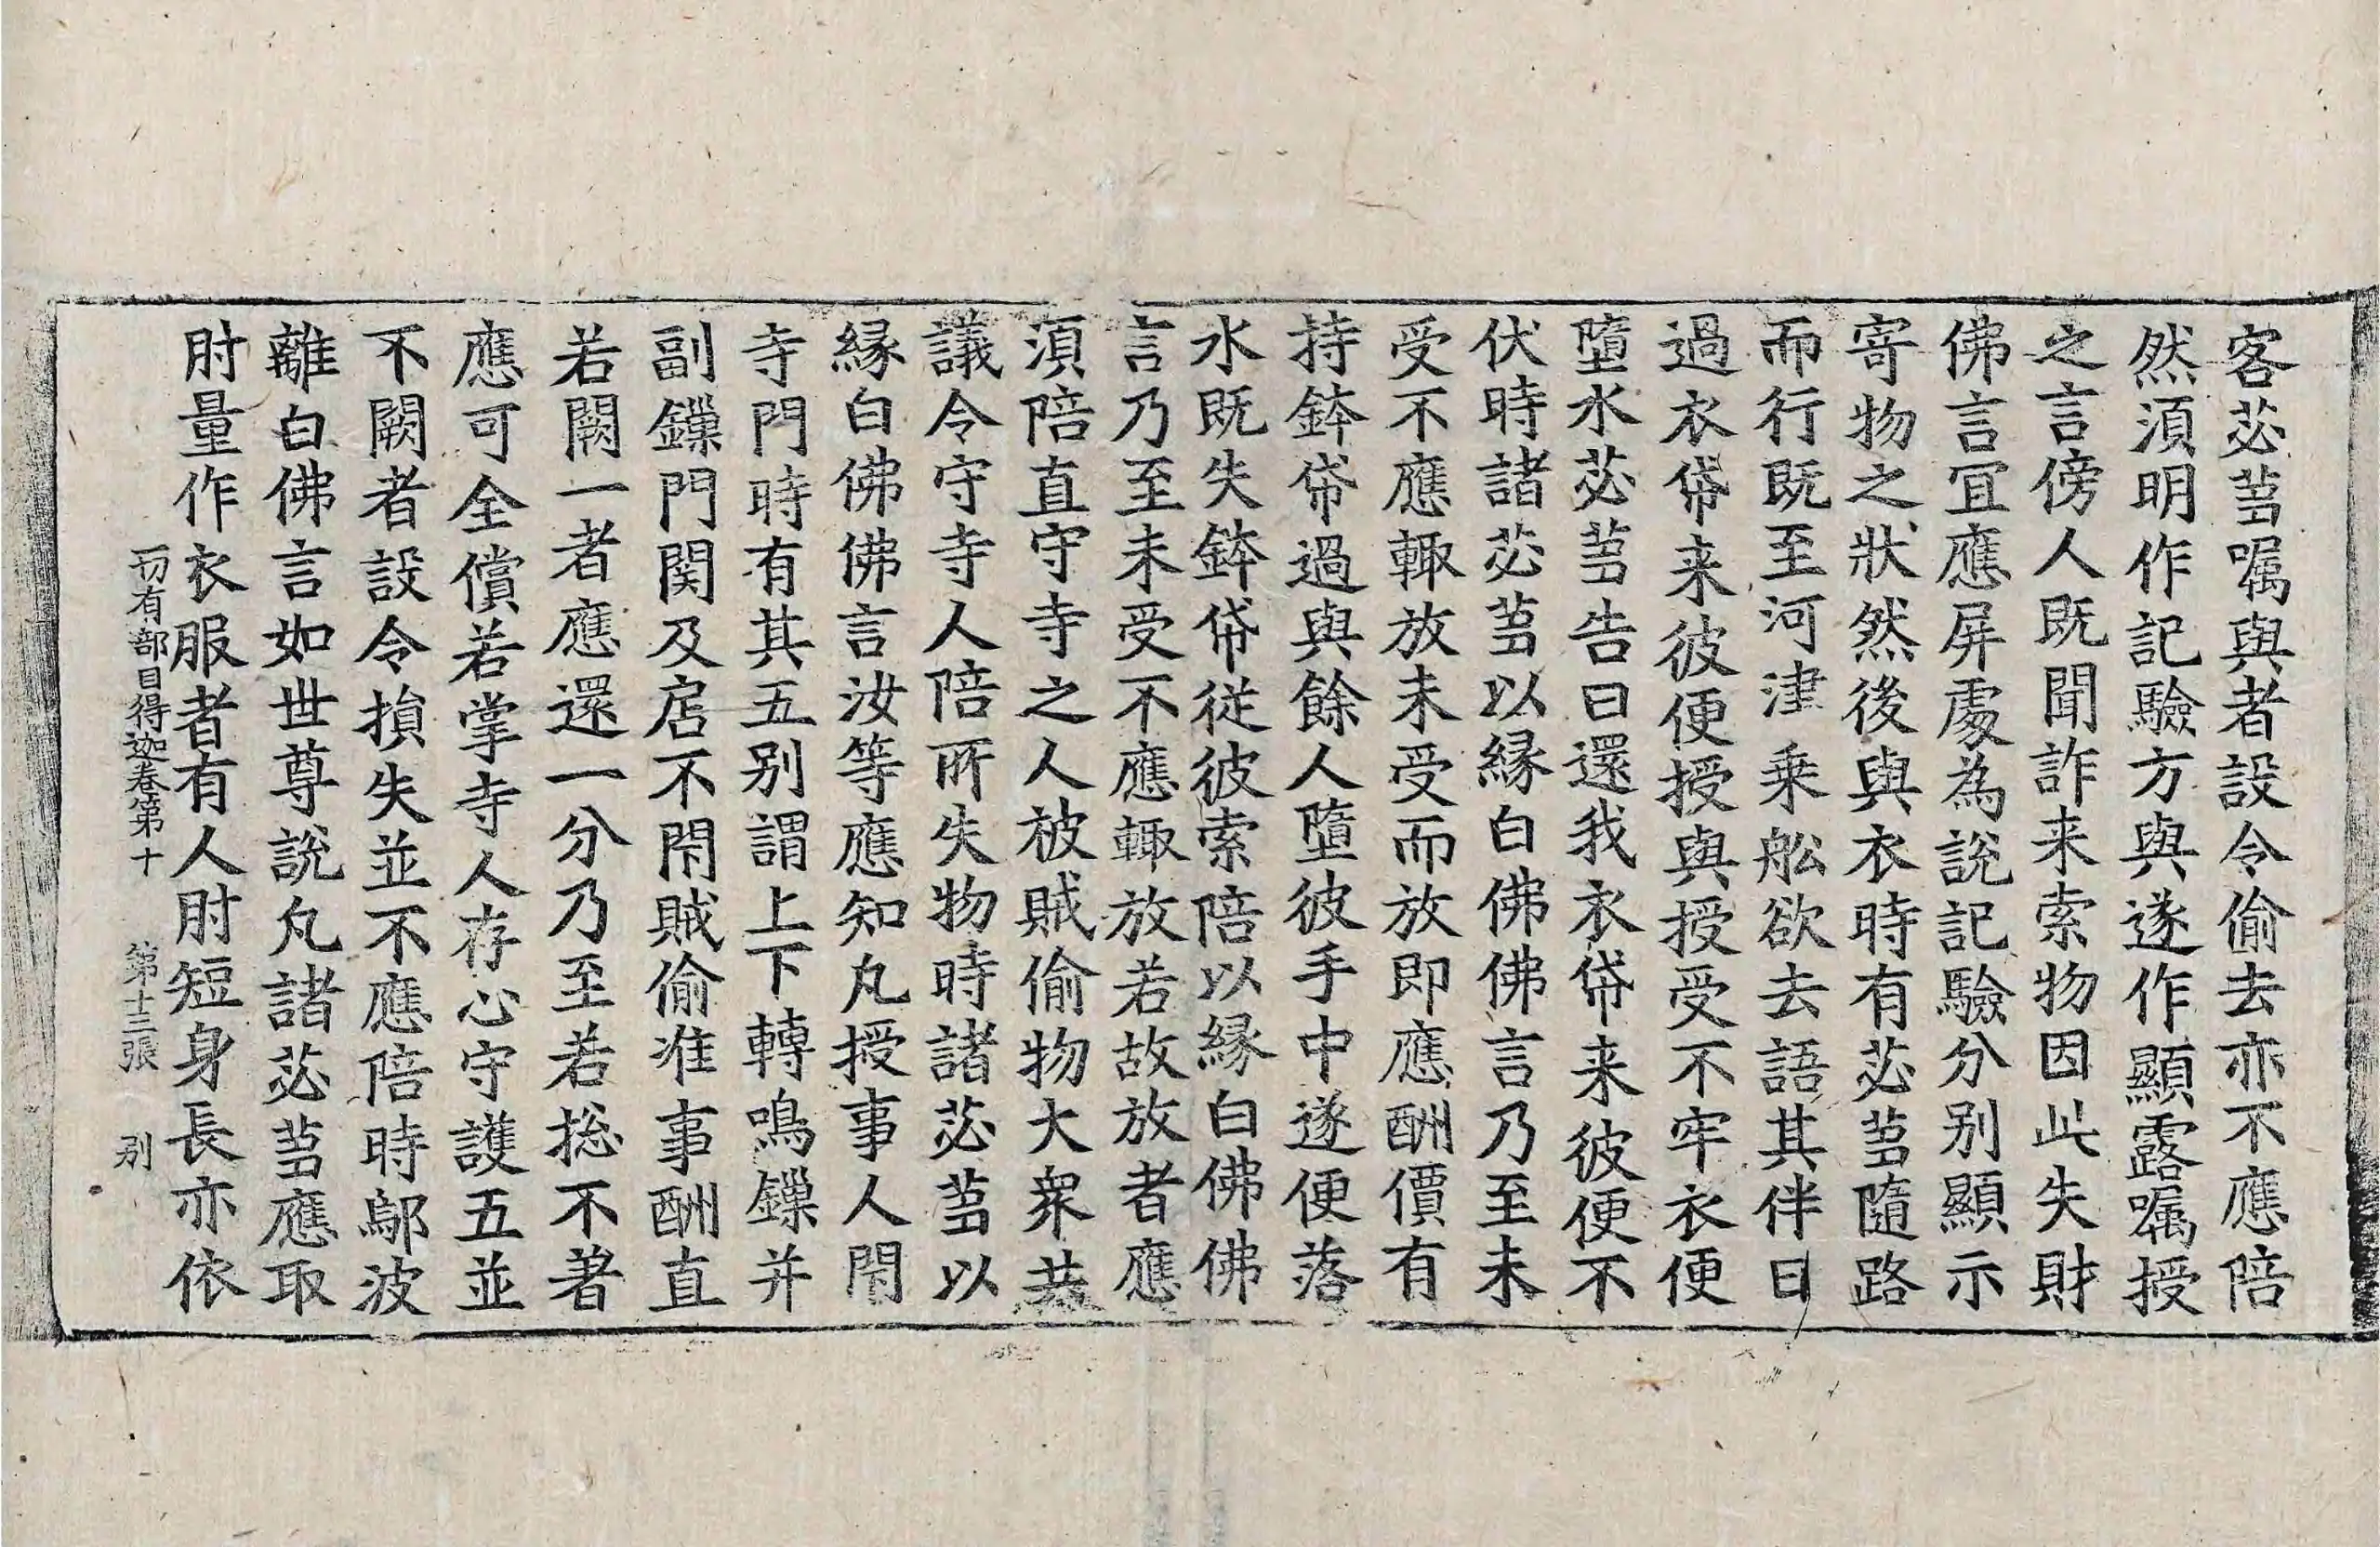 客苾蒭嘱與者設令偷去亦不應陪
然湏明作記驗方與遂作顯露嘱授
之言傍人既聞詐来索物因此失財
佛言冝應屏處為說記驗分别顯示
寄物之狀然後與衣時有苾蒭隨路
而行既至河津乗舩欲去語其伴曰
過衣帒来彼便授與授受不牢衣便
墮水苾蒭告曰還我衣帒来彼便不
伏時諸苾蒭以縁白佛佛言乃至未
受不應輙放未受而放即應酬價有
持鉢帒過與餘人墮彼手中遂便落
水既失鉢帒従彼索陪以縁白佛佛
言乃至未受不應輙放若故放者應
湏陪直守寺之人被賊偷物大衆共
議令守寺人陪所失物時諸苾蒭以
縁白佛佛言汝等應知凢授事人閇
寺門時有其五别謂上下轉鳴鏁并
副鏁門関及扂不閇賊偷准事酬直
若闕一者應還一分乃至若捴不著
應可全償若掌寺人存心守護五並
不闕者設令損失並不應陪時鄔波
離白佛言如世尊說凢諸苾蒭應取
肘量作衣服者有人肘短身長亦依
一切有部目得迦卷第十　第十三張　别